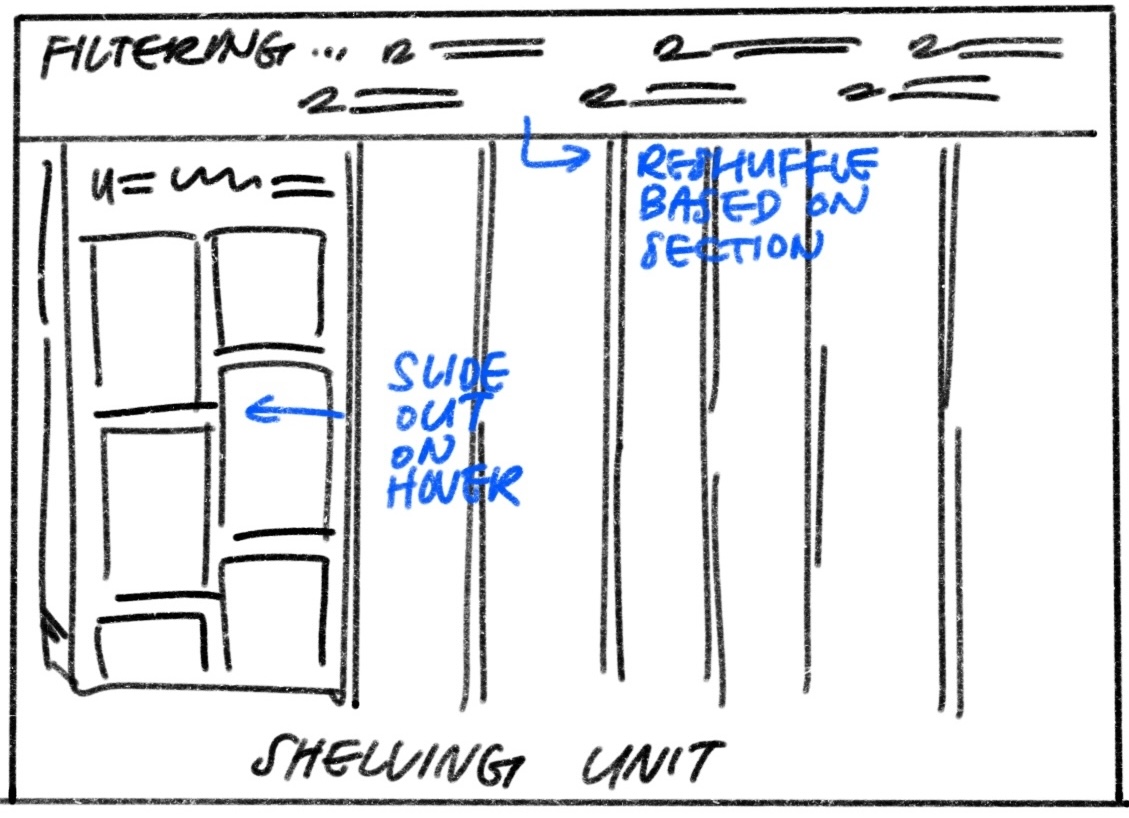 FILTERING...
RESHUFFLE
BASED ON
SECTION
SLIDE
OUT
ON
HOVER
SHELVING UNIT